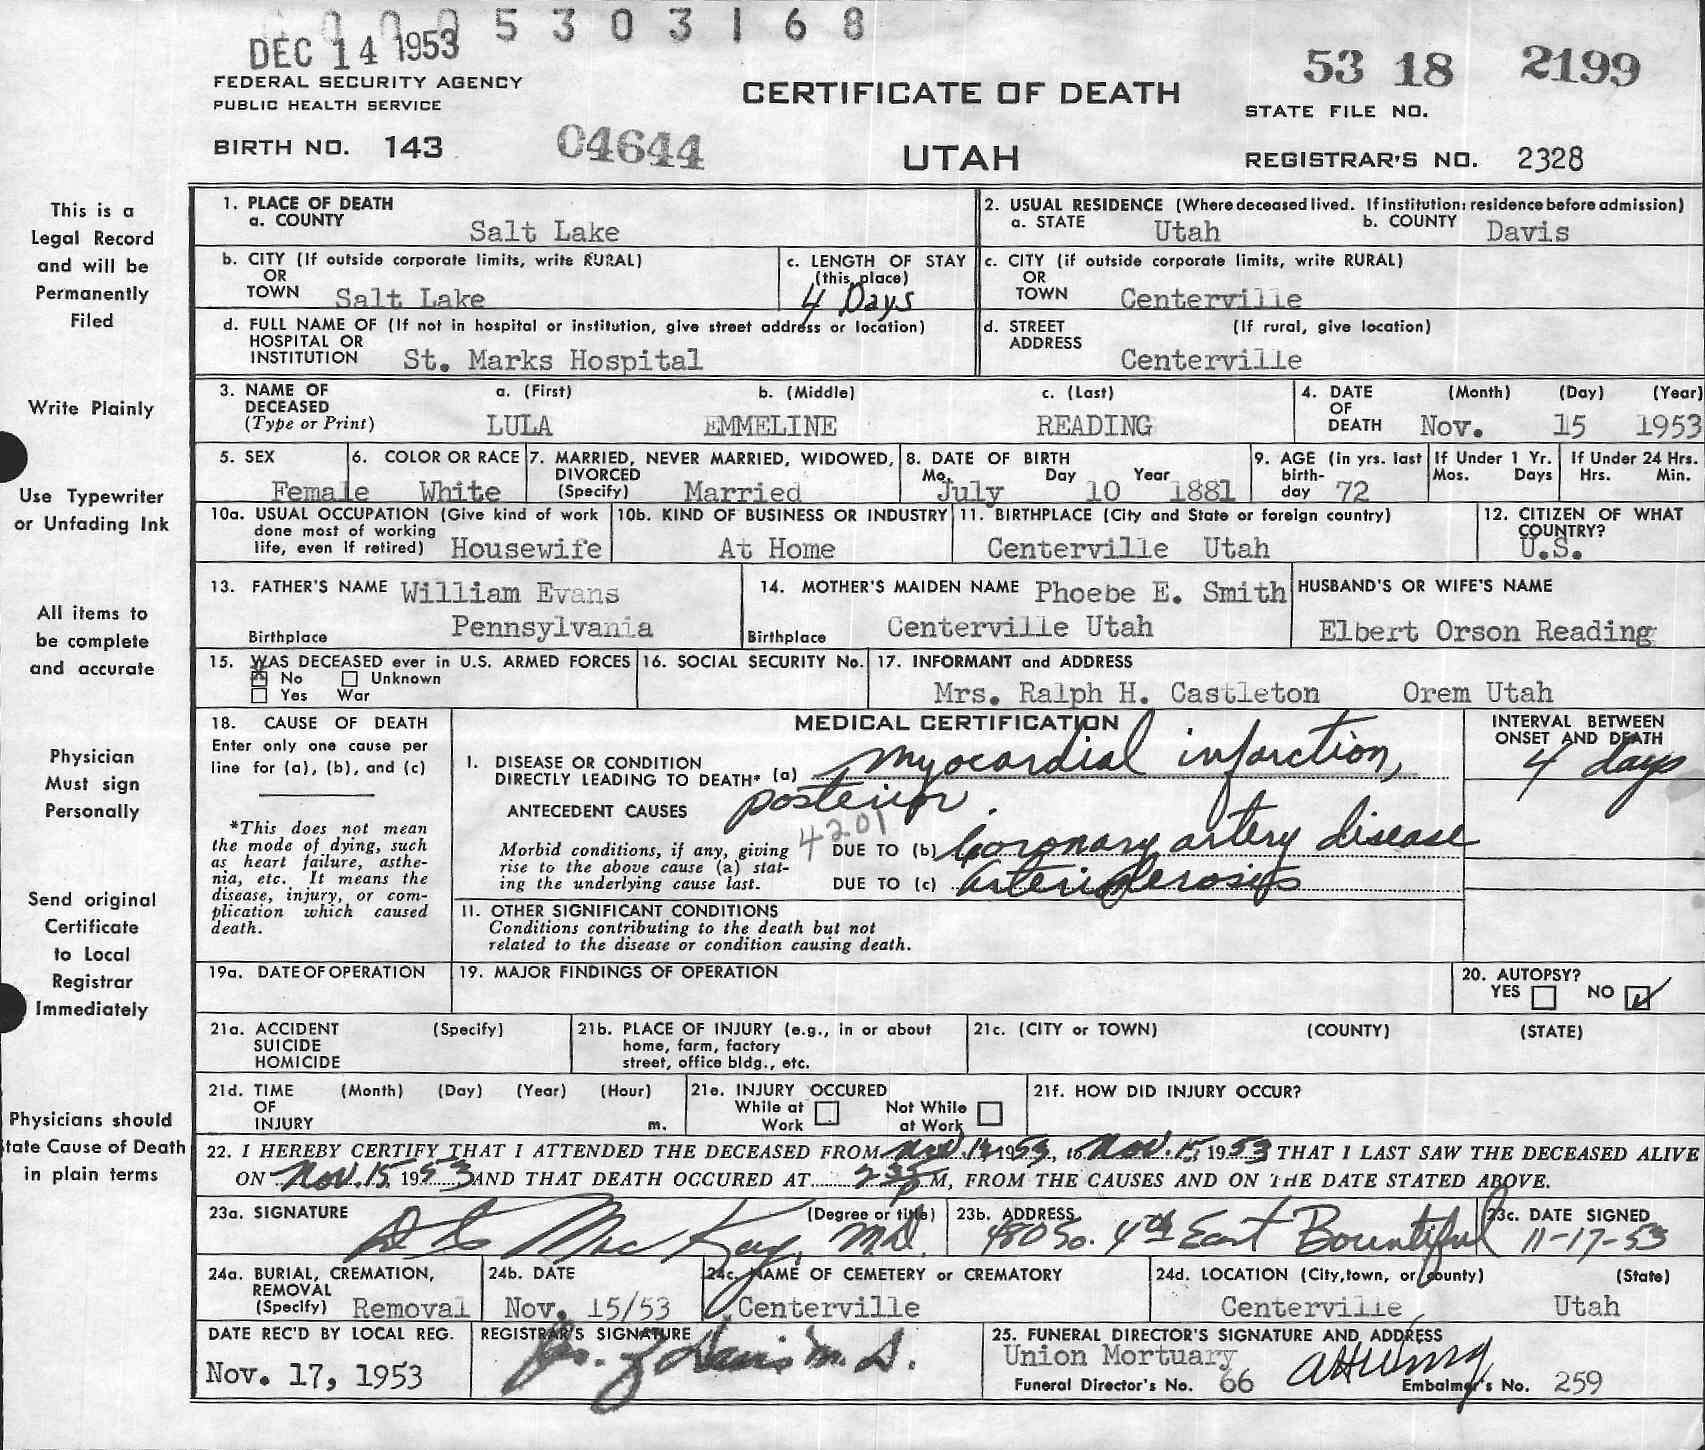 0005303168
DEC 14 1953
FEDERAL SECURITY AGENCY
PUBLIC HEALTH SERVICE
CERTIFICATE OF DEATH
53 18 2199
STATE FILE NO.
BIRTH NO. 143 04644
UTAH
REGISTRAR'S NO. 2328
This is a
Legal Record
and will be
Permanently
Filed
Write Plainly
Use Typewriter
or Unfading Ink
All items to
be complete
and accurate
Physician
Must sign
Personally
Send original
Certificate
to Local
Registrar
Immediately
Physicians should
tate Cause of Death
in plain terms
1. PLACE OF DEATH
a. COUNTY
Salt Lake
2. USUAL RESIDENCE (Where deceased lived. If institution: residence before admission)
a. STATE Utah b. COUNTY Davis
b. CITY (If outside corporate limits, write RURAL)
OR
TOWN Salt Lake
c. LENGTH OF STAY
(this place)
4 Days
c. CITY (if outside corporate limits, write RURAL)
OR
TOWN Centerville
d. FULL NAME OF (If not in hospital or institution, give street address or location)
HOSPITAL OR
INSTITUTION St. Marks Hospital
d. STREET (If rural, give location)
ADDRESS
Centerville
3. NAME OF a. (First) b. (Middle) c. (Last)
DECEASED
(Type or Print) LULA EMMELINE READING
4. DATE (Month) (Day) (Year)
OF
DEATH Nov. 15 1953
5. SEX
Female
6. COLOR OR RACE
White
7. MARRIED, NEVER MARRIED, WIDOWED,
DIVORCED
(Specify) Married
8. DATE OF BIRTH
Mo. Day Year
July 10 1881
9. AGE (in yrs. last
birth-
day 72
If Under 1 Yr.
Mos. Days
If Under 24 Hrs.
Hrs. Min.
10a. USUAL OCCUPATION (Give kind of work
done most of working
life, even if retired) Housewife
10b. KIND OF BUSINESS OR INDUSTRY
At Home
11. BIRTHPLACE (City and State or foreign country)
Centerville Utah
12. CITIZEN OF WHAT
COUNTRY?
U.S.
13. FATHER'S NAME William Evans
Birthplace Pennsylvania
14. MOTHER'S MAIDEN NAME Phoebe E. Smith
Birthplace Centerville Utah
HUSBAND'S OR WIFE'S NAME
Elbert Orson Reading
15. WAS DECEASED ever in U.S. ARMED FORCES
No Unknown
Yes War
16. SOCIAL SECURITY No.
17. INFORMANT and ADDRESS
Mrs. Ralph H. Castleton Orem Utah
18. CAUSE OF DEATH
Enter only one cause per
line for (a), (b), and (c)
*This does not mean
the mode of dying, such
as heart failure, asthe-
nia, etc. It means the
disease, injury, or com-
plication which caused
death.
MEDICAL CERTIFICATION
I. DISEASE OR CONDITION
DIRECTLY LEADING TO DEATH* (a) Myocardial infarction,
posterior.
ANTECEDENT CAUSES
4201
Morbid conditions, if any, giving
rise to the above cause (a) stat-
ing the underlying cause last.
DUE TO (b) Coronary artery disease
DUE TO (c) arteriosclerosis
II. OTHER SIGNIFICANT CONDITIONS
Conditions contributing to the death but not
related to the disease or condition causing death.
INTERVAL BETWEEN
ONSET AND DEATH
4 days
19a. DATE OF OPERATION
19. MAJOR FINDINGS OF OPERATION
20. AUTOPSY?
YES NO
21a. ACCIDENT (Specify)
SUICIDE
HOMICIDE
21b. PLACE OF INJURY (e.g., in or about
home, farm, factory
street, office bldg., etc.
21c. (CITY or TOWN) (COUNTY) (STATE)
21d. TIME (Month) (Day) (Year) (Hour)
OF
INJURY m.
21e. INJURY OCCURED
While at Work
Not While at Work
21f. HOW DID INJURY OCCUR?
22. I HEREBY CERTIFY THAT I ATTENDED THE DECEASED FROM Nov. 1953, to Nov. 15, 1953 THAT I LAST SAW THE DECEASED ALIVE
ON Nov. 15 1953 AND THAT DEATH OCCURED AT 235 P M, FROM THE CAUSES AND ON THE DATE STATED ABOVE.
23a. SIGNATURE (Degree or title)
MacKay, M.D.
23b. ADDRESS
480 So. 4th East Bountiful
23c. DATE SIGNED
11-17-53
24a. BURIAL, CREMATION,
REMOVAL
(Specify) Removal
24b. DATE
Nov. 15/53
24c. NAME OF CEMETERY or CREMATORY
Centerville
24d. LOCATION (City, town, or county) (State)
Centerville Utah
DATE REC'D BY LOCAL REG.
Nov. 17, 1953
REGISTRAR'S SIGNATURE
Davis M.D.
25. FUNERAL DIRECTOR'S SIGNATURE AND ADDRESS
Union Mortuary
Funeral Director's No. 66 Embalmer's No. 259